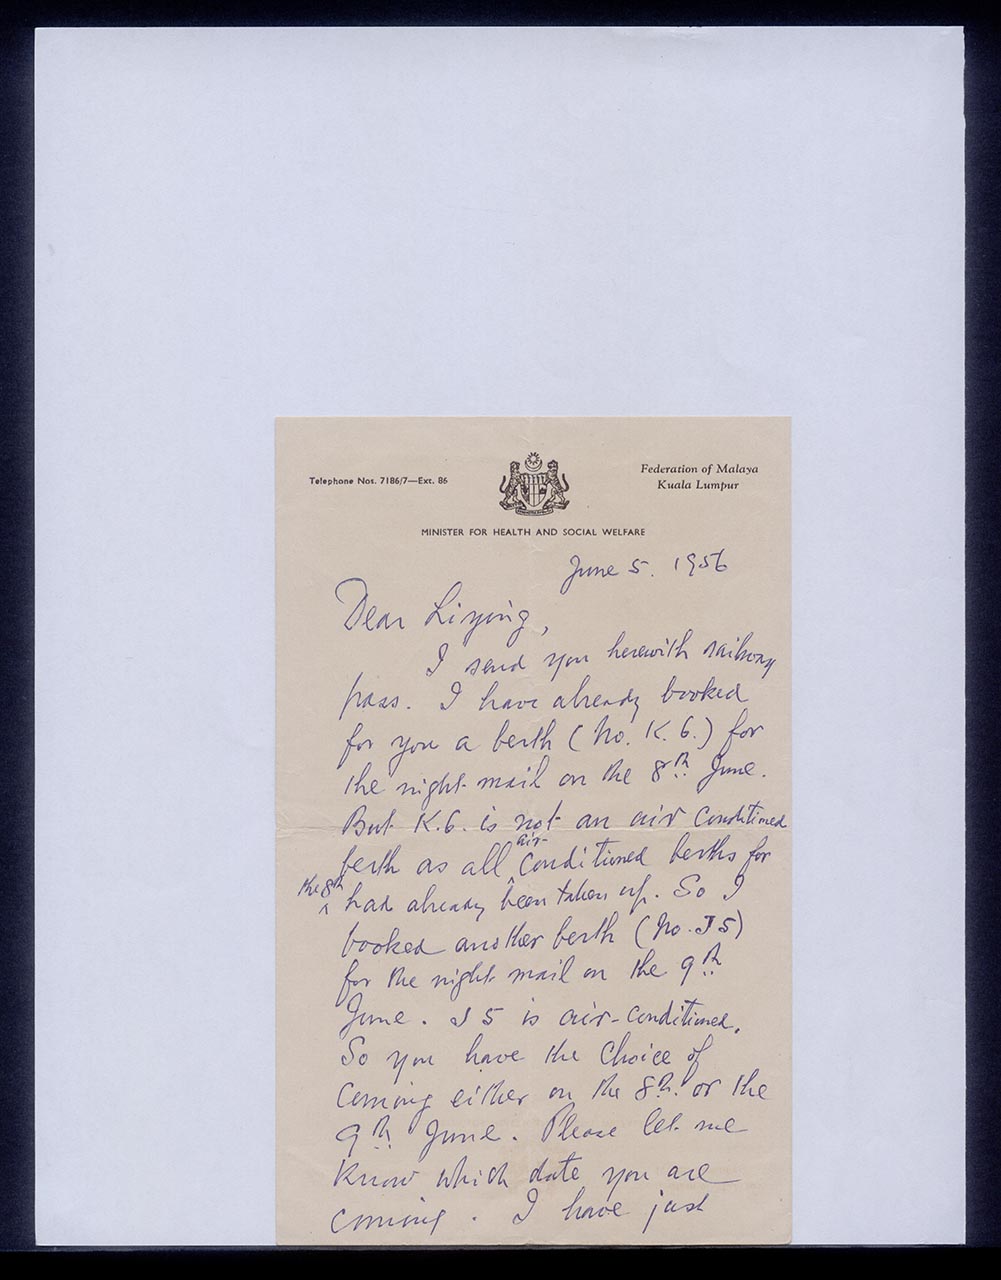 Telephone Nos. 7186/7—Ext. 86
Federation of Malaya
Kuala Lumpur
MINISTER FOR HEALTH AND SOCIAL WELFARE
June 5. 1956
Dear Liying,
I send you herewith railway
pass. I have already booked
for you a berth (No. K. 6.) for
the night mail on the 8th June.
But K.6. is not an air conditioned
berth as all air-conditioned berths for
the 8th had already been taken up. So I
booked another berth (No. J5)
for the night mail on the 9th
June. J5 is air-conditioned.
So you have the choice of
coming either on the 8th or the
9th June. Please let me
know which date you are
coming. I have just